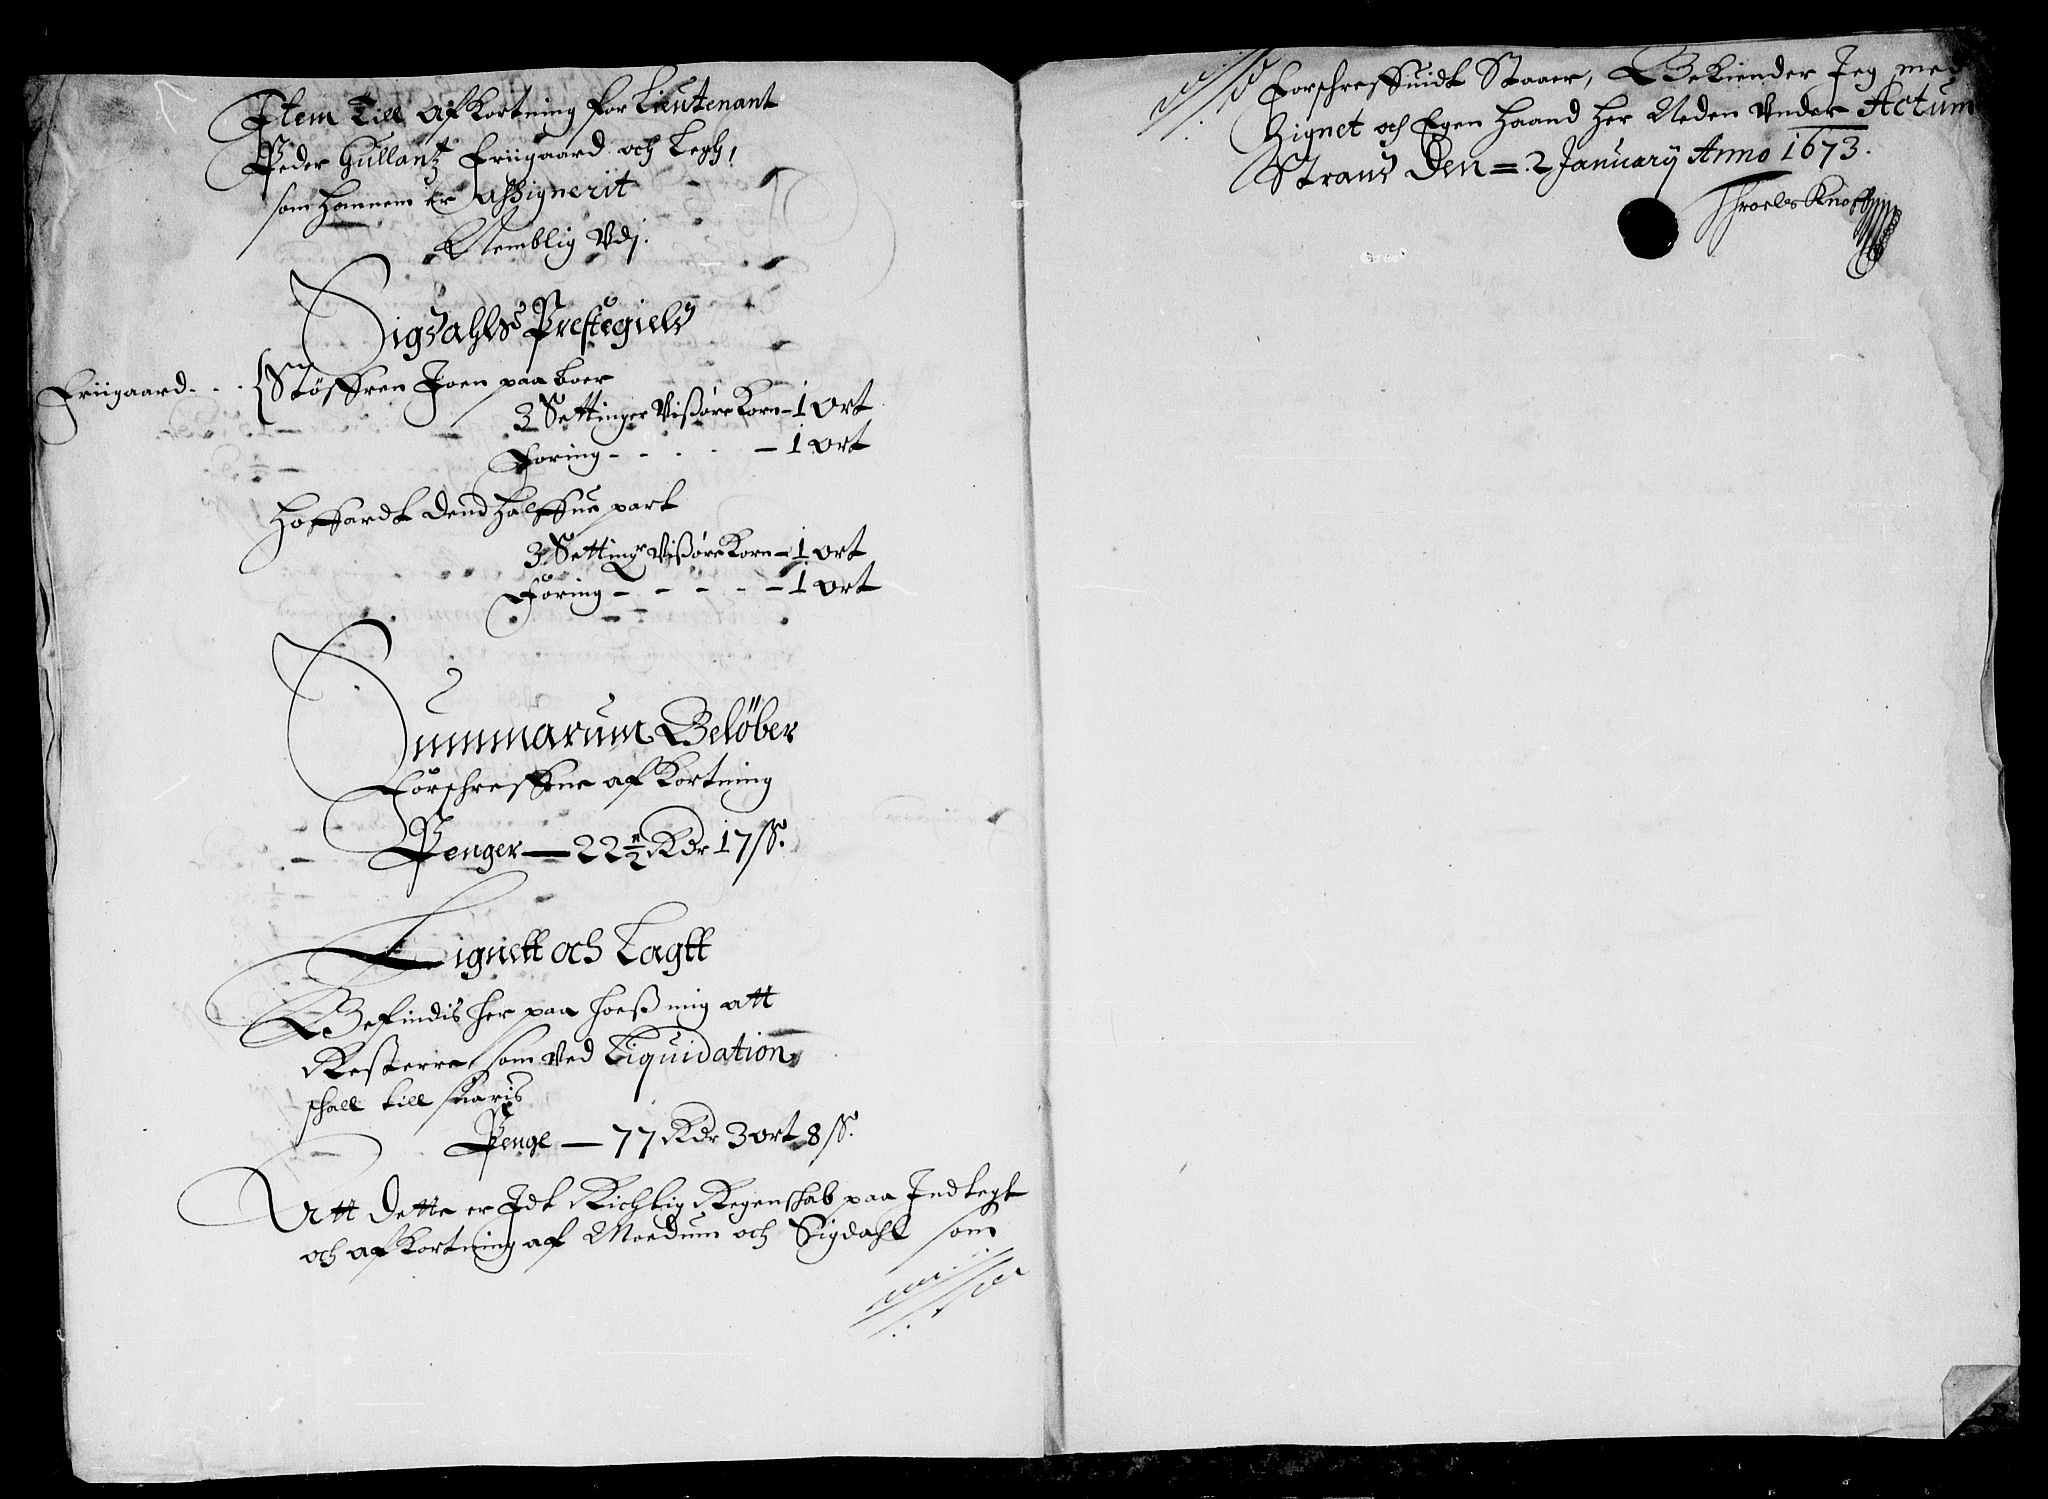 Item Till afKortning for Lieutenant
Peder Gullantz Friigaard och Legh,
som hannem er Assignerit
Nemblig Vdj.
Sigdahls Prestegield
Friigaard - - - Støffren Joen paa boer
3 Settinger Vißøre Korn - 1 ort
Foring - - - - 1 ort
Hoffardt dend halffue part
3 Setting Vißøre Korn - 1 ort
Foring - - - - - 1 ort
Summarum Beløber
Forschreffne afKortning
Penger — 22½ Rdr 17 ß.
Lignett och Lagtt
Befindis her paa hoeß mig att
Resterre, som ved Liquidation
schall till suaris
Penge — 77 Rdr 3 ort 8 ß.
Att dette er Idt Richtig Regenschab paa Indtegt
och afKortning af Moedum och Sigdahl som
Forschreffuidt Staaer, Bekiender Jeg med
Zignet och Egen Haand her Neden Vnder Actum
Strand Den = 2 January Anno 1673.
Throels Knoff